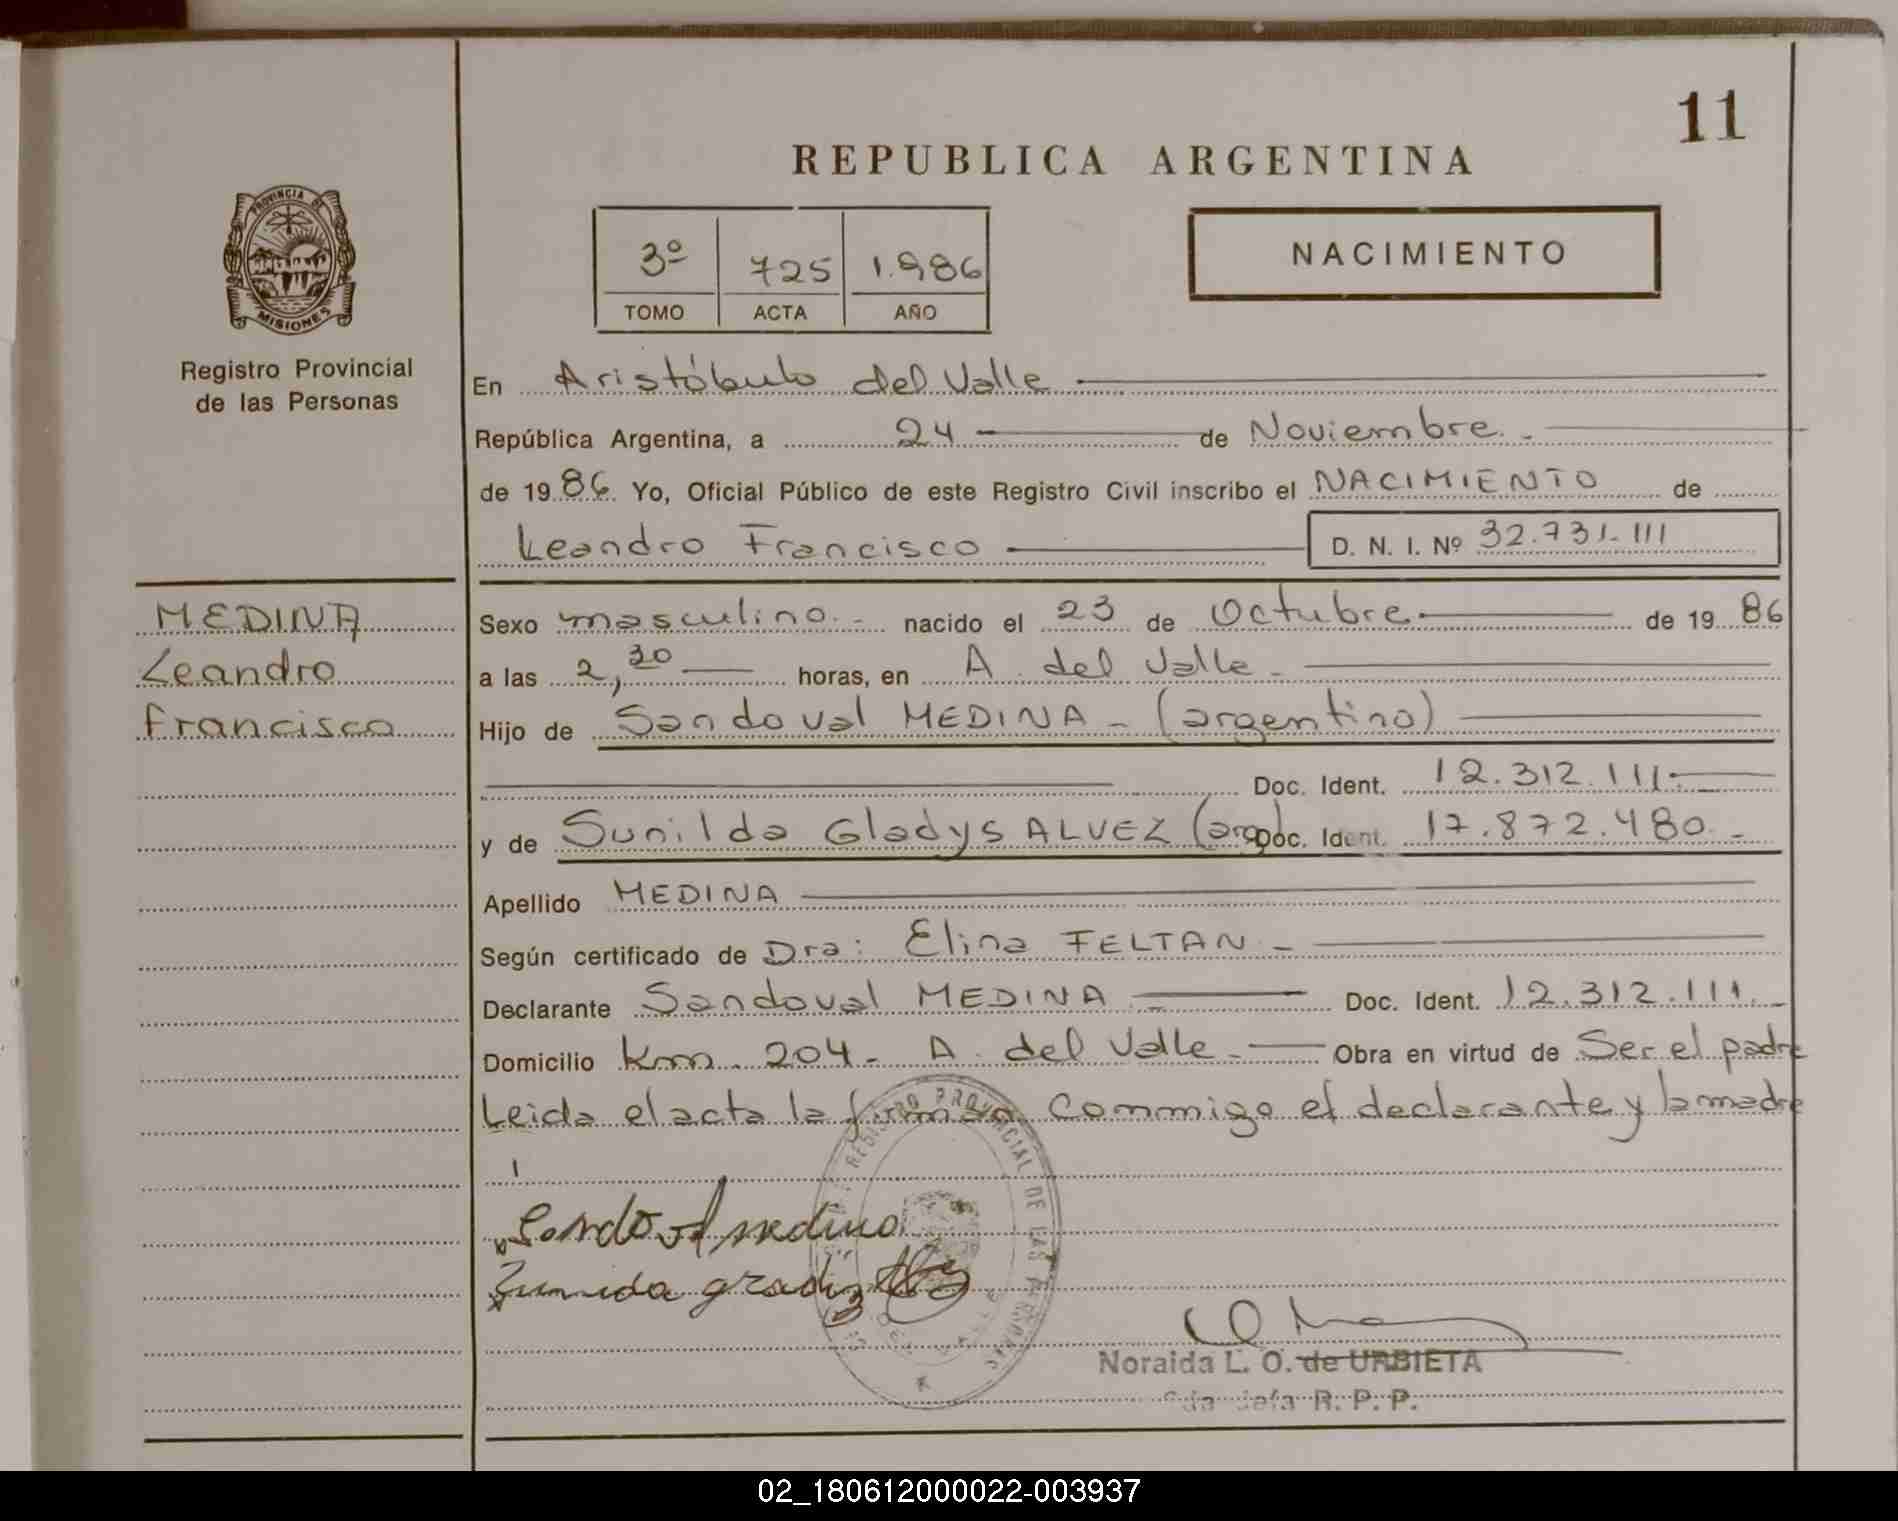 11
REPUBLICA ARGENTINA
PROVINCIA DE
MISIONES
Registro Provincial
de las Personas
3º 725 1.986
TOMO ACTA AÑO
NACIMIENTO
En Aristóbulo del Valle
República Argentina, a 24 de Noviembre.-
de 1986. Yo, Oficial Público de este Registro Civil inscribo el NACIMIENTO de
Leandro Francisco D. N. I. Nº 32.731.111
MEDINA
Leandro
Francisco
Sexo masculino.- nacido el 23 de Octubre de 1986
a las 2,30 horas, en A. del Valle.-
Hijo de Sandoval MEDINA - (argentino)
Doc. Ident. 12.312.111.-
y de Sunilda Gladys ALVEZ (arg) Doc. Ident. 17.872.480.-
Apellido MEDINA
Según certificado de Dra: Elina FELTAN.-
Declarante Sandoval MEDINA.- Doc. Ident. 12.312.111.-
Domicilio Km. 204.- A. del Valle.- Obra en virtud de Ser el padre
Leida el acta la firman commigo el declarante y la madre
REGISTRO PROVINCIAL DE LAS
Sandoval medina
Noraida L. O. de URBIETA
R. P. P.
02_180612000022-003937